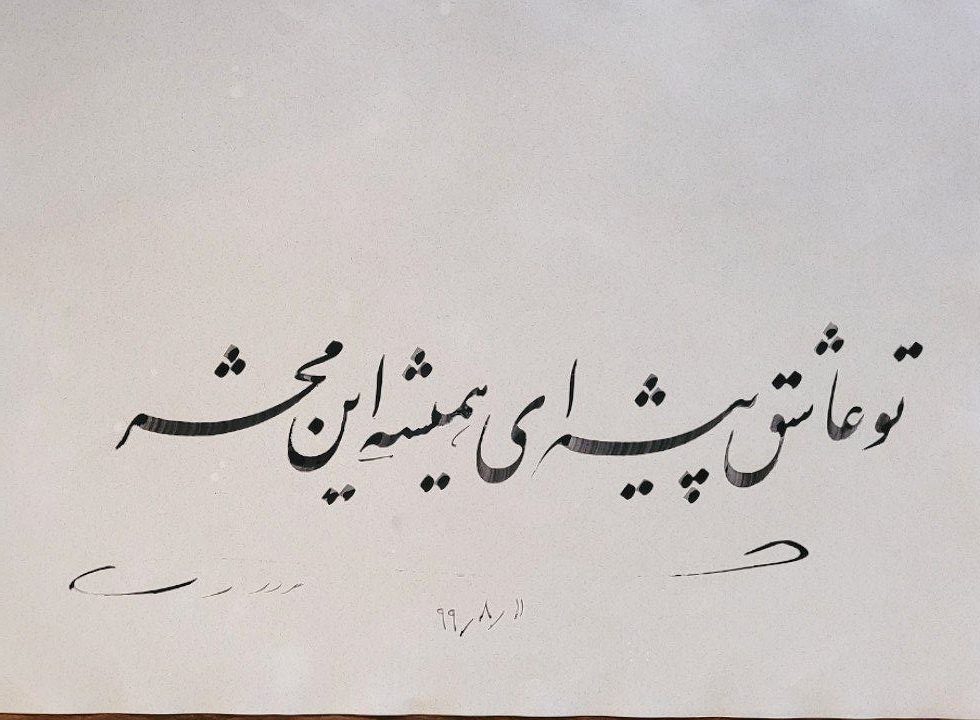 تو عاشق پیشه ای همیشه این محشر
۹۹/۸/۱۱